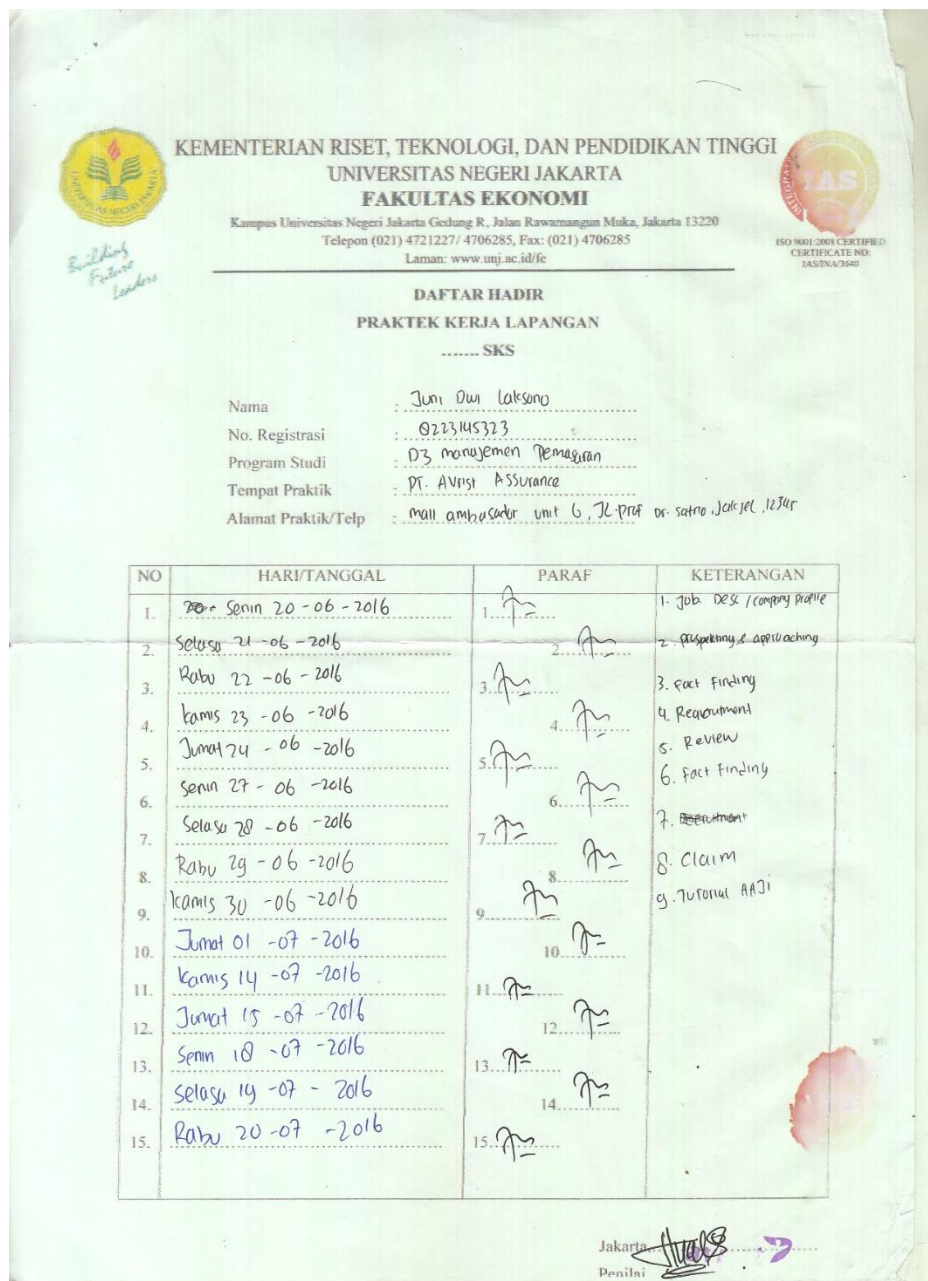 KEMENTERIAN RISET, TEKNOLOGI, DAN PENDIDIKAN TINGGI
UNIVERSITAS NEGERI JAKARTA
FAKULTAS EKONOMI
Kampus Universitas Negeri Jakarta Gedung R, Jalan Rawamangun Muka, Jakarta 13220
Telepon (021) 4721227/ 4706285, Fax: (021) 4706285
Laman: www.unj.ac.id/fe
UNIVERSITAS NEGERI JAKARTA
Building
Future
Leaders
IAS
ISO 9001:2008 CERTIFIED
CERTIFICATE NO:
IAS/INA/3640
DAFTAR HADIR
PRAKTEK KERJA LAPANGAN
....... SKS
Nama : Juni Dwi Laksono
No. Registrasi : 8223145323
Program Studi : D3 manajemen Pemasaran
Tempat Praktik : PT. Avrist Assurance
Alamat Praktik/Telp : mall ambasador unit 6, JL. Prof Dr. Satrio, Jak sel
NO HARI/TANGGAL PARAF KETERANGAN
1. Senin 20 - 06 - 2016 1. 1. Job Desc / company profile
2. Selasa 21 - 06 - 2016 2. 2. prospekting & approaching
3. Rabu 22 - 06 - 2016 3. 3. Fact Finding
4. kamis 23 - 06 - 2016 4. 4.
5. Jumat 24 - 06 - 2016 5. 5. Review
6. Senin 27 - 06 - 2016 6. 6. Fact Finding
7. Selasa 28 - 06 - 2016 7. 7.
8. Rabu 29 - 06 - 2016 8. 8. Claim
9. kamis 30 - 06 - 2016 9. 9. Tutorial AAJI
10. Jumat 01 - 07 - 2016 10.
11. Kamis 14 - 07 - 2016 11.
12. Jumat 15 - 07 - 2016 12.
13. Senin 18 - 07 - 2016 13.
14. Selasa 19 - 07 - 2016 14.
15. Rabu 20 - 07 - 2016 15.
Jakarta
Penilai